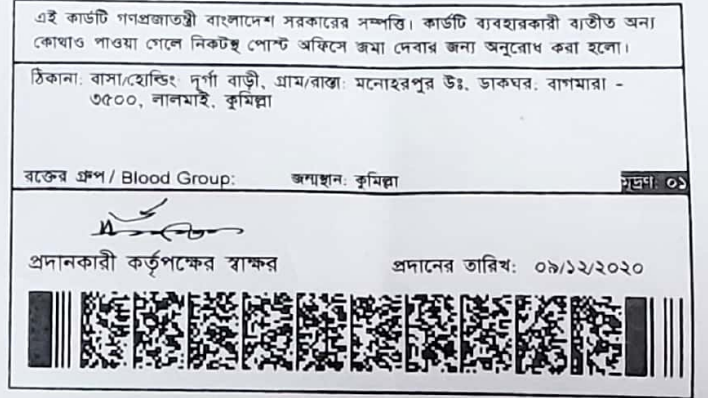 এই কার্ডটি গণপ্রজাতন্ত্রী বাংলাদেশ সরকারের সম্পত্তি। কার্ডটি ব্যবহারকারী ব্যতীত অন্য
কোথাও পাওয়া গেলে নিকটস্থ পোস্ট অফিসে জমা দেবার জন্য অনুরোধ করা হলো।
ঠিকানা: বাসা/হোল্ডিং: দূর্গা বাড়ী, গ্রাম/রাস্তা: মনোহরপুর উঃ, ডাকঘর: বাগমারা -
৩৫০০, লালমাই, কুমিল্লা
রক্তের গ্রুপ / Blood Group: জন্মস্থান: কুমিল্লা মুদ্রণ: ০১
প্রদানকারী কর্তৃপক্ষের স্বাক্ষর প্রদানের তারিখ: ০৯/১২/২০২০